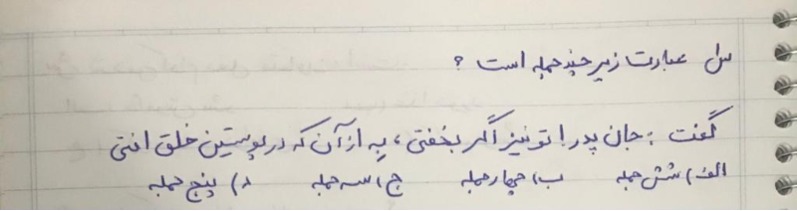 س۱ عبارت زیر چند جمله است ؟
گفت : جان پدر ! تو نیز اگر بخفتی ، به از آن که در پوستین خلق افتی
الف) شش جمله ب) چهار جمله ج) سه جمله د) پنج جمله